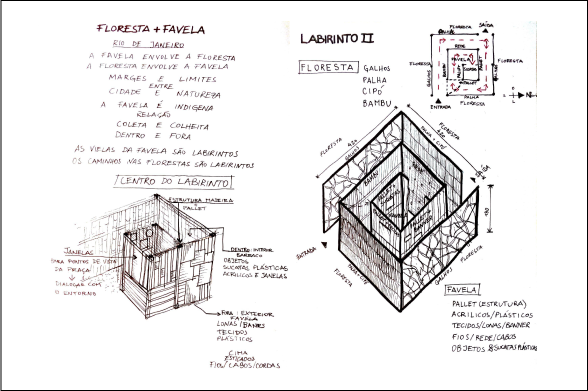 FLORESTA + FAVELA
RIO DE JANEIRO
A FAVELA ENVOLVE A FLORESTA
A FLORESTA ENVOLVE A FAVELA
MARGES E LIMITES
ENTRE
CIDADE E NATUREZA
A FAVELA É INDIGENA
RELAÇÃO
COLETA E COLHEITA
DENTRO E FORA
AS VIELAS DA FAVELA SÃO LABIRINTOS
OS CAMINHOS NAS FLORESTAS SÃO LABIRINTOS
CENTRO DO LABIRINTO
ESTRUTURA MADEIRA
PALLET
JANELAS
PARA PONTOS DE VISTA
DA PRAÇA
DIALOGAR COM
O ENTORNO
DENTRO: INTERIOR
BARRACO
OBJETOS
SUCATAS PLÁSTICAS
ACRILICOS E JANELAS
FORA: EXTERIOR
FAVELA
LONAS/BANNER
TECIDOS
PLÁSTICOS
CIMA
ESTICADOS
FIOS/CABOS/CORDAS
LABIRINTO II
FLORESTA
GALHOS
PALHA
CIPÓ
BAMBU
FLORESTA
SAÍDA
BAMBU
REDE
FLORESTA
GALHOS
FAVELA
PALLET
GALHOS
FLORESTA
PALHA
FLORESTA
ENTRADA
N
FLORESTA
430
BAMBU
FLORESTA
430
PALHA
CIPÓ
REDE
SAÍDA
190
ENTRADA
FLORESTA
PALHA
GALHOS
FLORESTA
FAVELA
PALLET (ESTRUTURA)
ACRILICOS/PLÁSTICOS
TECIDOS/LONAS/BANNER
FIOS/REDE/CABOS
OBJETOS & SUCATAS PLÁSTICAS